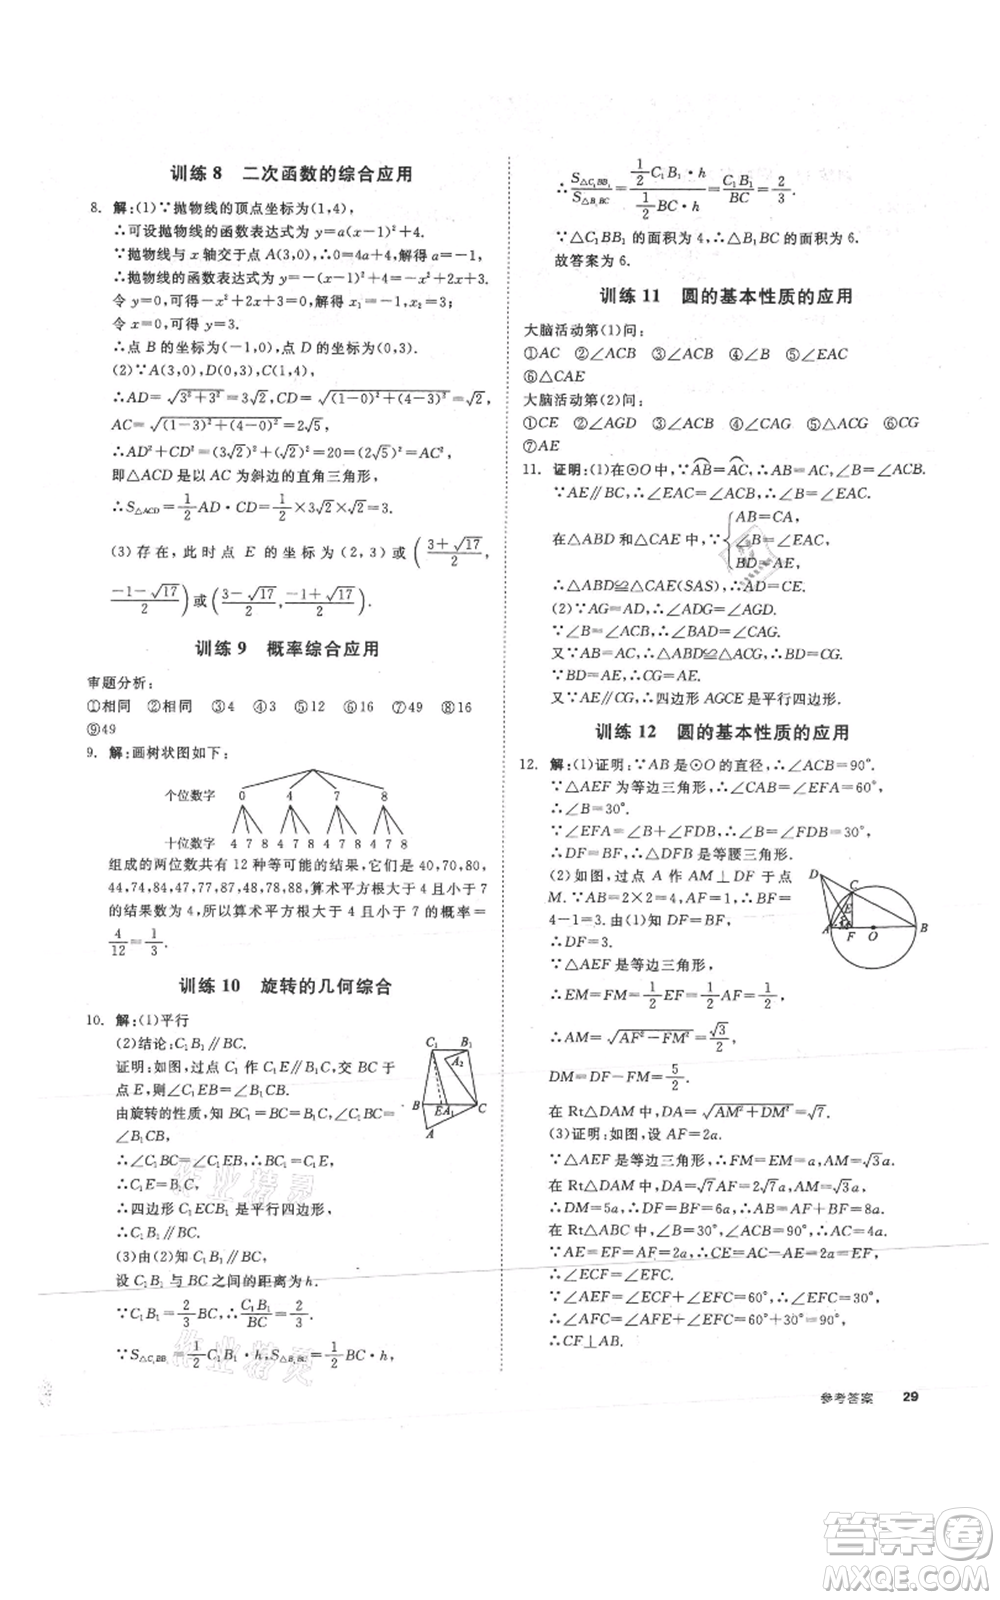 训练8 二次函数的综合应用
8. 解:(1)∵抛物线的顶点坐标为(1,4),
∴可设抛物线的函数表达式为 y=a(x-1)²+4.
∵抛物线与 x 轴交于点 A(3,0),∴0=4a+4,
∴抛物线的函数表达式为 y=-(x-1)²+4=-x²+2x+3.
令 y=0,可得-x²+2x+3=0,解得 x₁=-1,x₂=3;
令 x=0,可得 y=3.
∴点 B 的坐标为(-1,0),点 D 的坐标为(0,3).
(2)∵A(3,0),D(0,3),C(1,4),
∴AD=√(3²+3²)=3√2,CD=√((1-0)²+(4-3)²)=√2,
AC=√((1-3)²+(4-0)²)=2√5,
∴AD²+CD²=(3√2)²+(√2)²=20=(2√5)²=AC²,
即△ACD是以 AC 为斜边的直角三角形,
∴S△ACD=1/2 AD·CD=1/2×3√2×√2=3.
(3)存在,此时点 E 的坐标为(2,3)或((3+√17)/2,
(-1-√17)/2)或((3-√17)/2,(-1+√17)/2).
训练9 概率综合应用
审题分析:
①相同 ②相同 ③4 ④3 ⑤12 ⑥4 ⑦8 ⑧16
⑨49
9. 解:画树状图如下:
个位数字 0 4 7 8
十位数字 4 7 8 4 7 8 4 7 8 4 7 8
组成的两位数共有 12 种等可能的结果,它们是 40,70,80,
44,74,84,47,77,87,48,78,88,算术平方根大于 4 且小于 7
的结果数为 4,所以算术平方根大于 4 且小于 7 的概率=
4/12=1/3.
训练10 旋转的几何综合
10. 解:(1)平行
(2)结论:C₁B₁∥BC.
证明:如图,过点 C₁ 作 C₁E∥B₁C,交 BC 于
点 E,则∠C₁EB=∠B₁CB.
由旋转的性质,知 BC₁=BC=B₁C,∠C₁BC=
∠B₁CB,
∴∠C₁BC=∠C₁EB,
∴C₁B=C₁E,∴C₁E=B₁C,
∴四边形 C₁ECB₁ 是平行四边形,
∴C₁B₁∥BC.
(3)由(2)知 C₁B₁∥BC,
设 C₁B₁ 与 BC 之间的距离为 h.
∵C₁B₁=2/3 BC,∴C₁B₁/BC=2/3.
∵S△C₁BB₁=1/2 C₁B₁·h,S△B₁BC=1/2 BC·h,
C₁ B₁
A₂
B EA₁ C
A
∴S△C₁BB₁/S△B₁BC=(1/2 C₁B₁·h)/(1/2 BC·h)=C₁B₁/BC=2/3.
∵△C₁BB₁ 的面积为 4,∴△B₁BC 的面积为 6.
故答案为 6.
训练11 圆的基本性质的应用
大脑活动第(1)问:
①AC ②∠EAC ③∠ACB ④∠B ⑤∠EAC
⑥△CAE
大脑活动第(2)问:
①CE ②∠AGD ③∠ACB ④∠B ⑤△ACG ⑥CG
⑦AE
11. 证明:(1)在⊙O中,∵AB⌒=AC⌒,∴AB=AC,∠B=∠ACB.
∵AE∥BC,∴∠EAC=∠ACB,∴∠B=∠EAC.
在△ABD和△CAE中,∵{AB=CA,
∠B=∠EAC,
BD=AE,
∴△ABD≌△CAE(SAS),∴AD=CE.
(2)∵AG=AD,∴∠ADG=∠AGD.
∵∠B=∠ACB,∴∠BAD=∠CAG.
又∵AB=AC,∴△ABD≌△ACG,∴BD=CG.
∵BD=AE,∴CG=AE.
又∵AE∥CG,∴四边形 AGCE是平行四边形.
训练12 圆的基本性质的应用
12. 解:(1)证明:∵AB 是⊙O 的直径,∴∠ACB=90°.
∵△AEF 为等边三角形,∴∠CAB=∠EFA=60°,
∴∠B=30°.
∵∠EFA=∠B+∠FDB,∴∠B=∠FDB=30°,
∴DF=BF,∴△DFB是等腰三角形.
(2)如图,过点 A 作 AM⊥DF 于点
M.∵AB=2×2=4,AF=1,∴BF=
4-1=3.由(1)知 DF=BF,
∴DF=3.
∵△AEF是等边三角形,
∴EM=FM=1/2 EF=1/2 AF=1/2,
∴AM=√(AF²-FM²)=√3/2,
DM=DF-FM=5/2.
在 Rt△DAM 中,DA=√(AM²+DM²)=√7.
(3)证明:如图,设 AF=2a.
∵△AEF 是等边三角形,∴FM=EM=a,AM=√3a.
在 Rt△DAM 中,DA=√7AF=2√7a,AM=√3a,
∴DM=5a,∴DF=BF=6a,∴AB=AF+BF=8a.
在 Rt△ABC 中,∠B=30°,∠ACB=90°,∴AC=4a.
∵AE=EF=AF=2a,∴CE=AC-AE=2a=EF,
∴∠ECF=∠EFC.
∵∠AEF=∠ECF+∠EFC=60°,∴∠EFC=30°,
∴∠AFC=∠AFE+∠EFC=60°+30°=90°,
∴CF⊥AB.
D C E A F O B
作业精灵
作业精灵
参考答案 29
答案圈
MXQE.COM